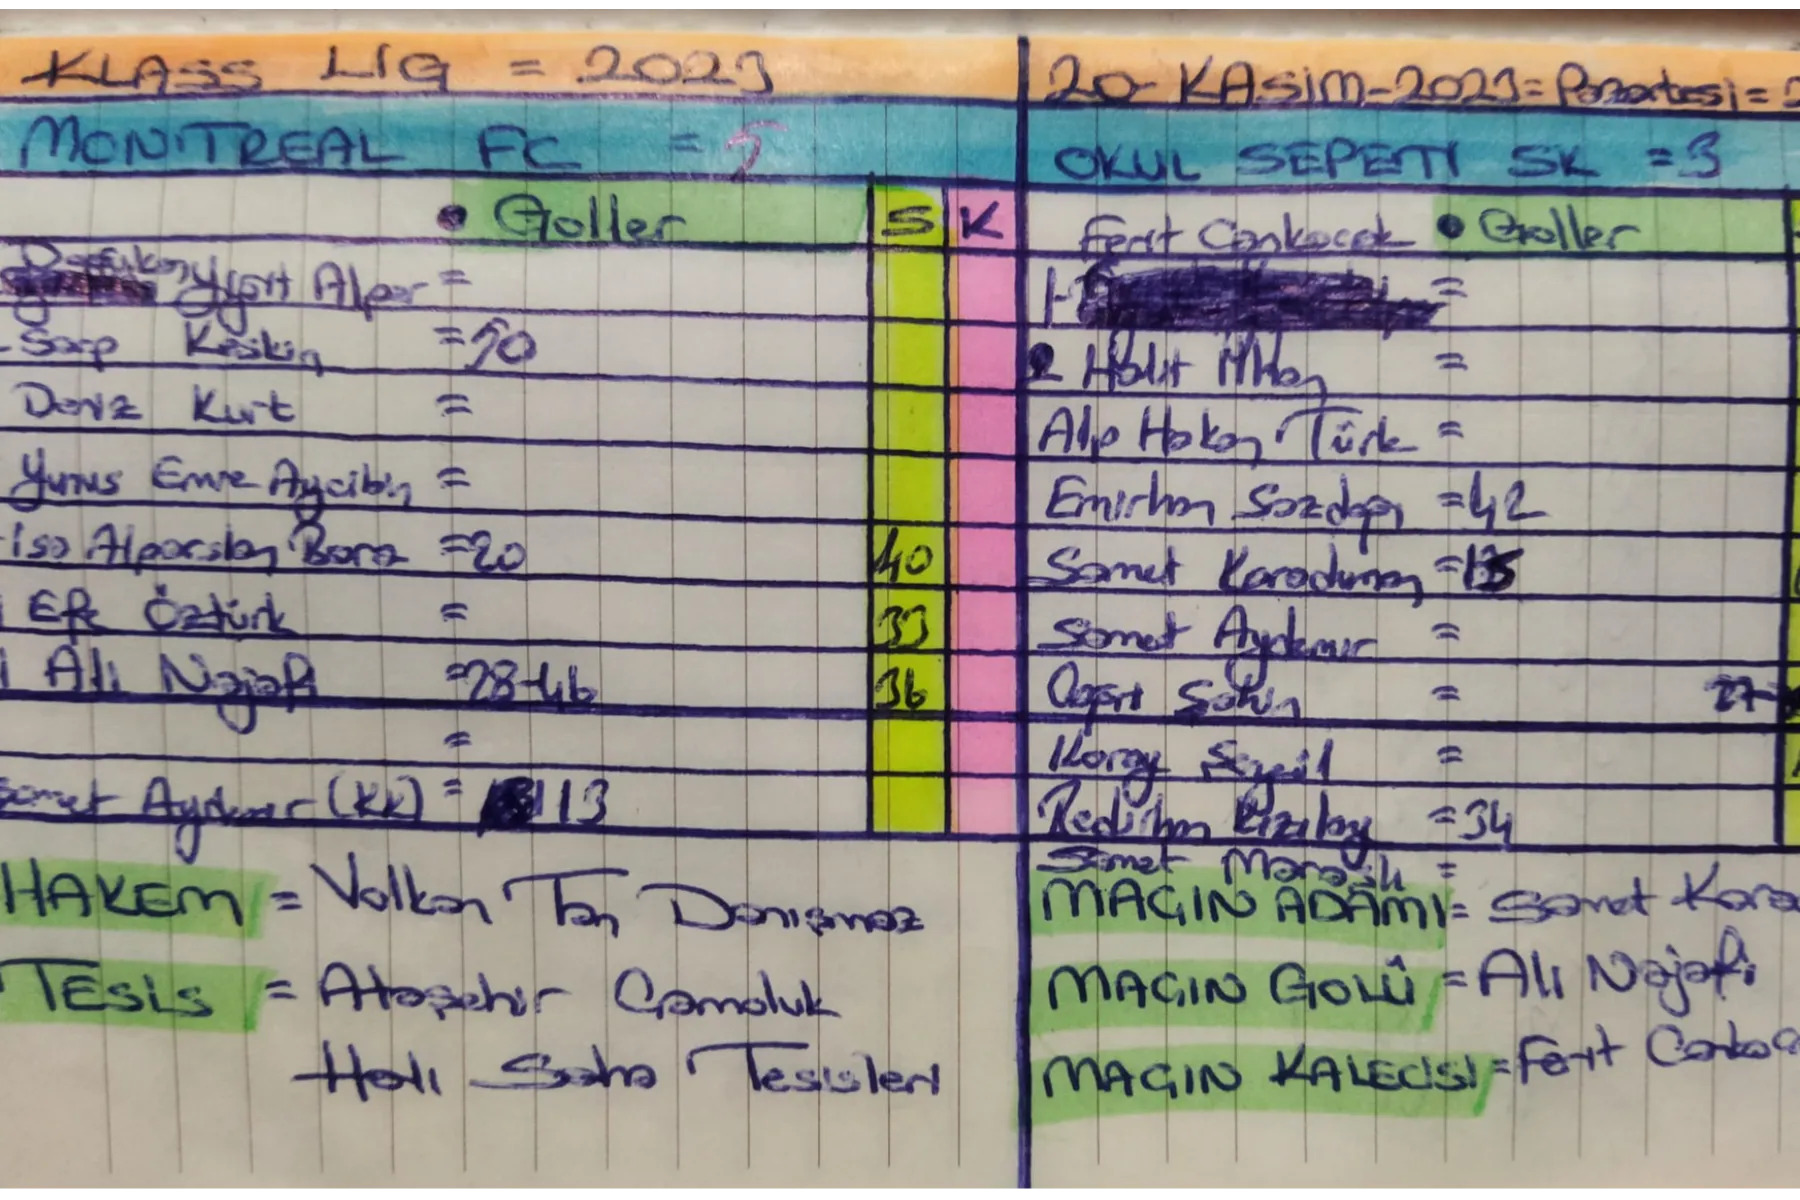 KLASS LİG = 2023
MONITREAL FC = 5
• Goller S K
Yiğit Alper =
Sarp Keskin = 50
Deniz Kurt =
Yunus Emre Aycibin =
İsa Alparslan Boraz = 20 40
Efe Öztürk = 33
Ali Najafi = 28-46 36
=
Samet Aydemir (KK) = 113
HAKEM = Volkan Tan Danışmaz
TESİS = Ataşehir Gamoluk
Halı Saha Tesisleri
20-KASIM-2023 = Pazartesi =
OKUL SEPETİ SK = 3
Ferit Cankocak • Goller
1- =
2 Halit İlhan =
Alp Hakan Türk =
Emirhan Sazdapı = 42
Samet Karaduman = 15
Samet Aydemir =
Şahin = 27-
Koray =
Redihan Kızılay = 34
Samet Maraşlı =
MAÇIN ADAMI = Samet Kara
MAÇIN GOLÜ = Ali Najafi
MAÇIN KALECİSİ = Ferit